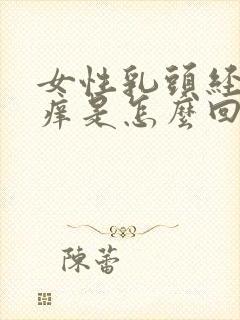 女性乳頭経
痒是怎麼回
陳蕾